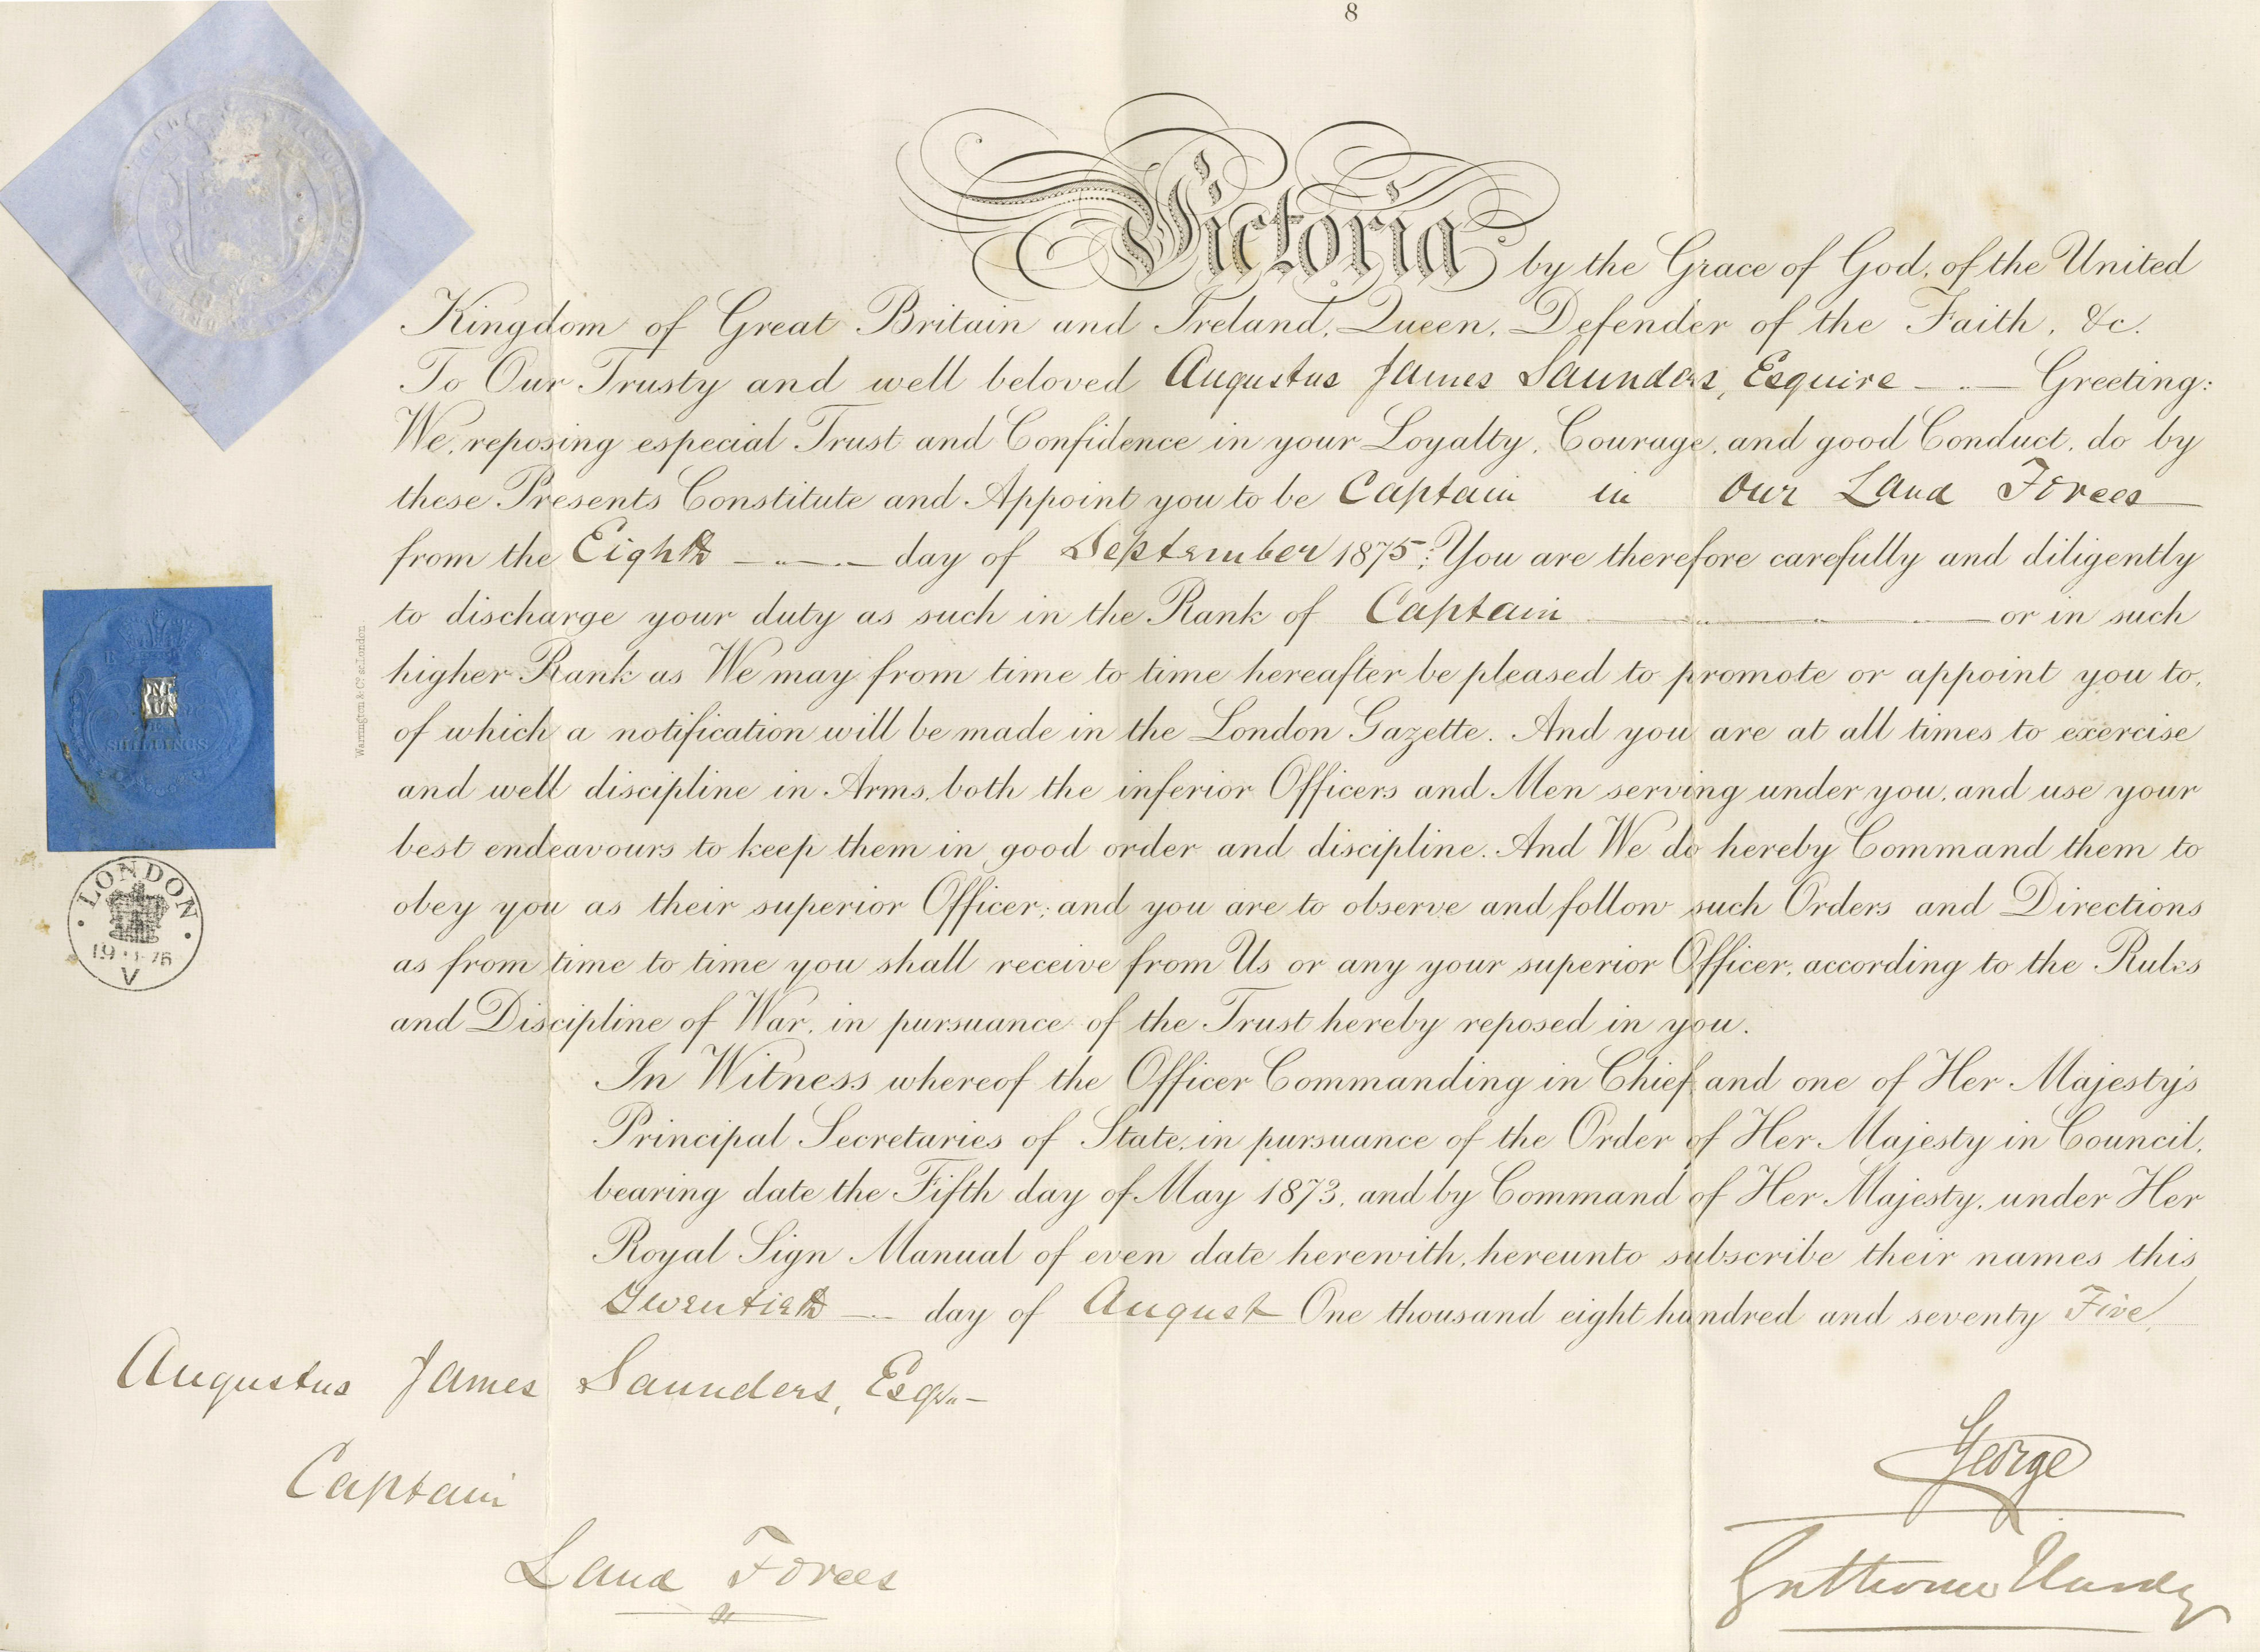 8
Victoria by the Grace of God, of the United
Kingdom of Great Britain and Ireland, Queen, Defender of the Faith, &c.
To Our Trusty and well beloved Augustus James Saunders, Esquire Greeting:
We, reposing especial Trust and Confidence in your Loyalty, Courage, and good Conduct, do by
these Presents Constitute and Appoint you to be Captain in Our Land Forces
from the Eighth day of September 1875; You are therefore carefully and diligently
to discharge your duty as such in the Rank of Captain or in such
higher Rank as We may from time to time hereafter be pleased to promote or appoint you to,
of which a notification will be made in the London Gazette. And you are at all times to exercise
and well discipline in Arms, both the inferior Officers and Men serving under you, and use your
best endeavours to keep them in good order and discipline. And We do hereby Command them to
obey you as their superior Officer; and you are to observe and follow such Orders and Directions
as from time to time you shall receive from Us or any your superior Officer, according to the Rules
and Discipline of War, in pursuance of the Trust hereby reposed in you.
In Witness whereof the Officer Commanding in Chief and one of Her Majesty's
Principal Secretaries of State, in pursuance of the Order of Her Majesty in Council,
bearing date the Fifth day of May 1873, and by Command of Her Majesty, under Her
Royal Sign Manual of even date herewith, hereunto subscribe their names this
Twentieth day of August One thousand eight hundred and seventy Five
Warrington & Co. sc. London
SHILLINGS
LONDON
V
Augustus James Saunders, Esqr.
Captain
Land Forces
George
Gathorne Hardy